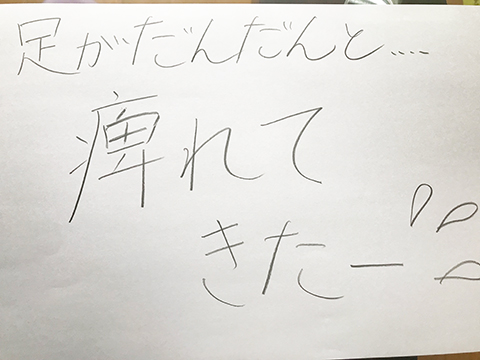 足がだんだんと....
痺れて
きたー